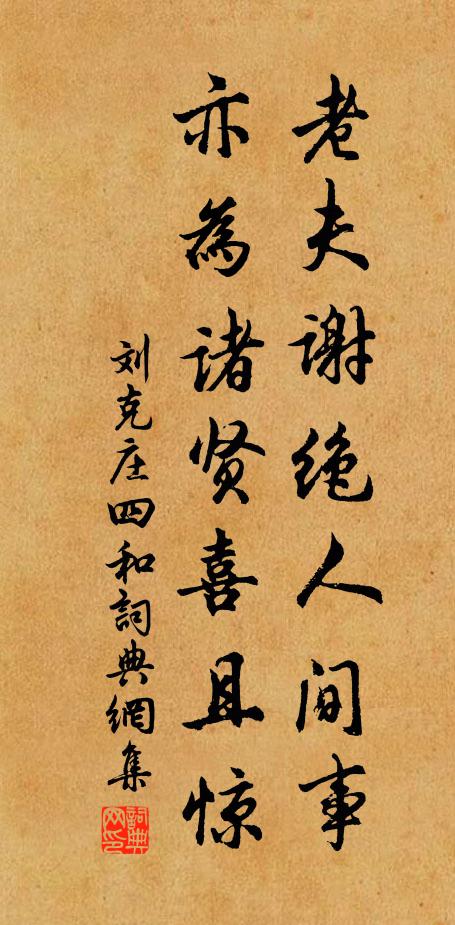 老夫谢绝人间事
亦為诸贤喜且惊
刘克庄四和詞典網集
詞典网印